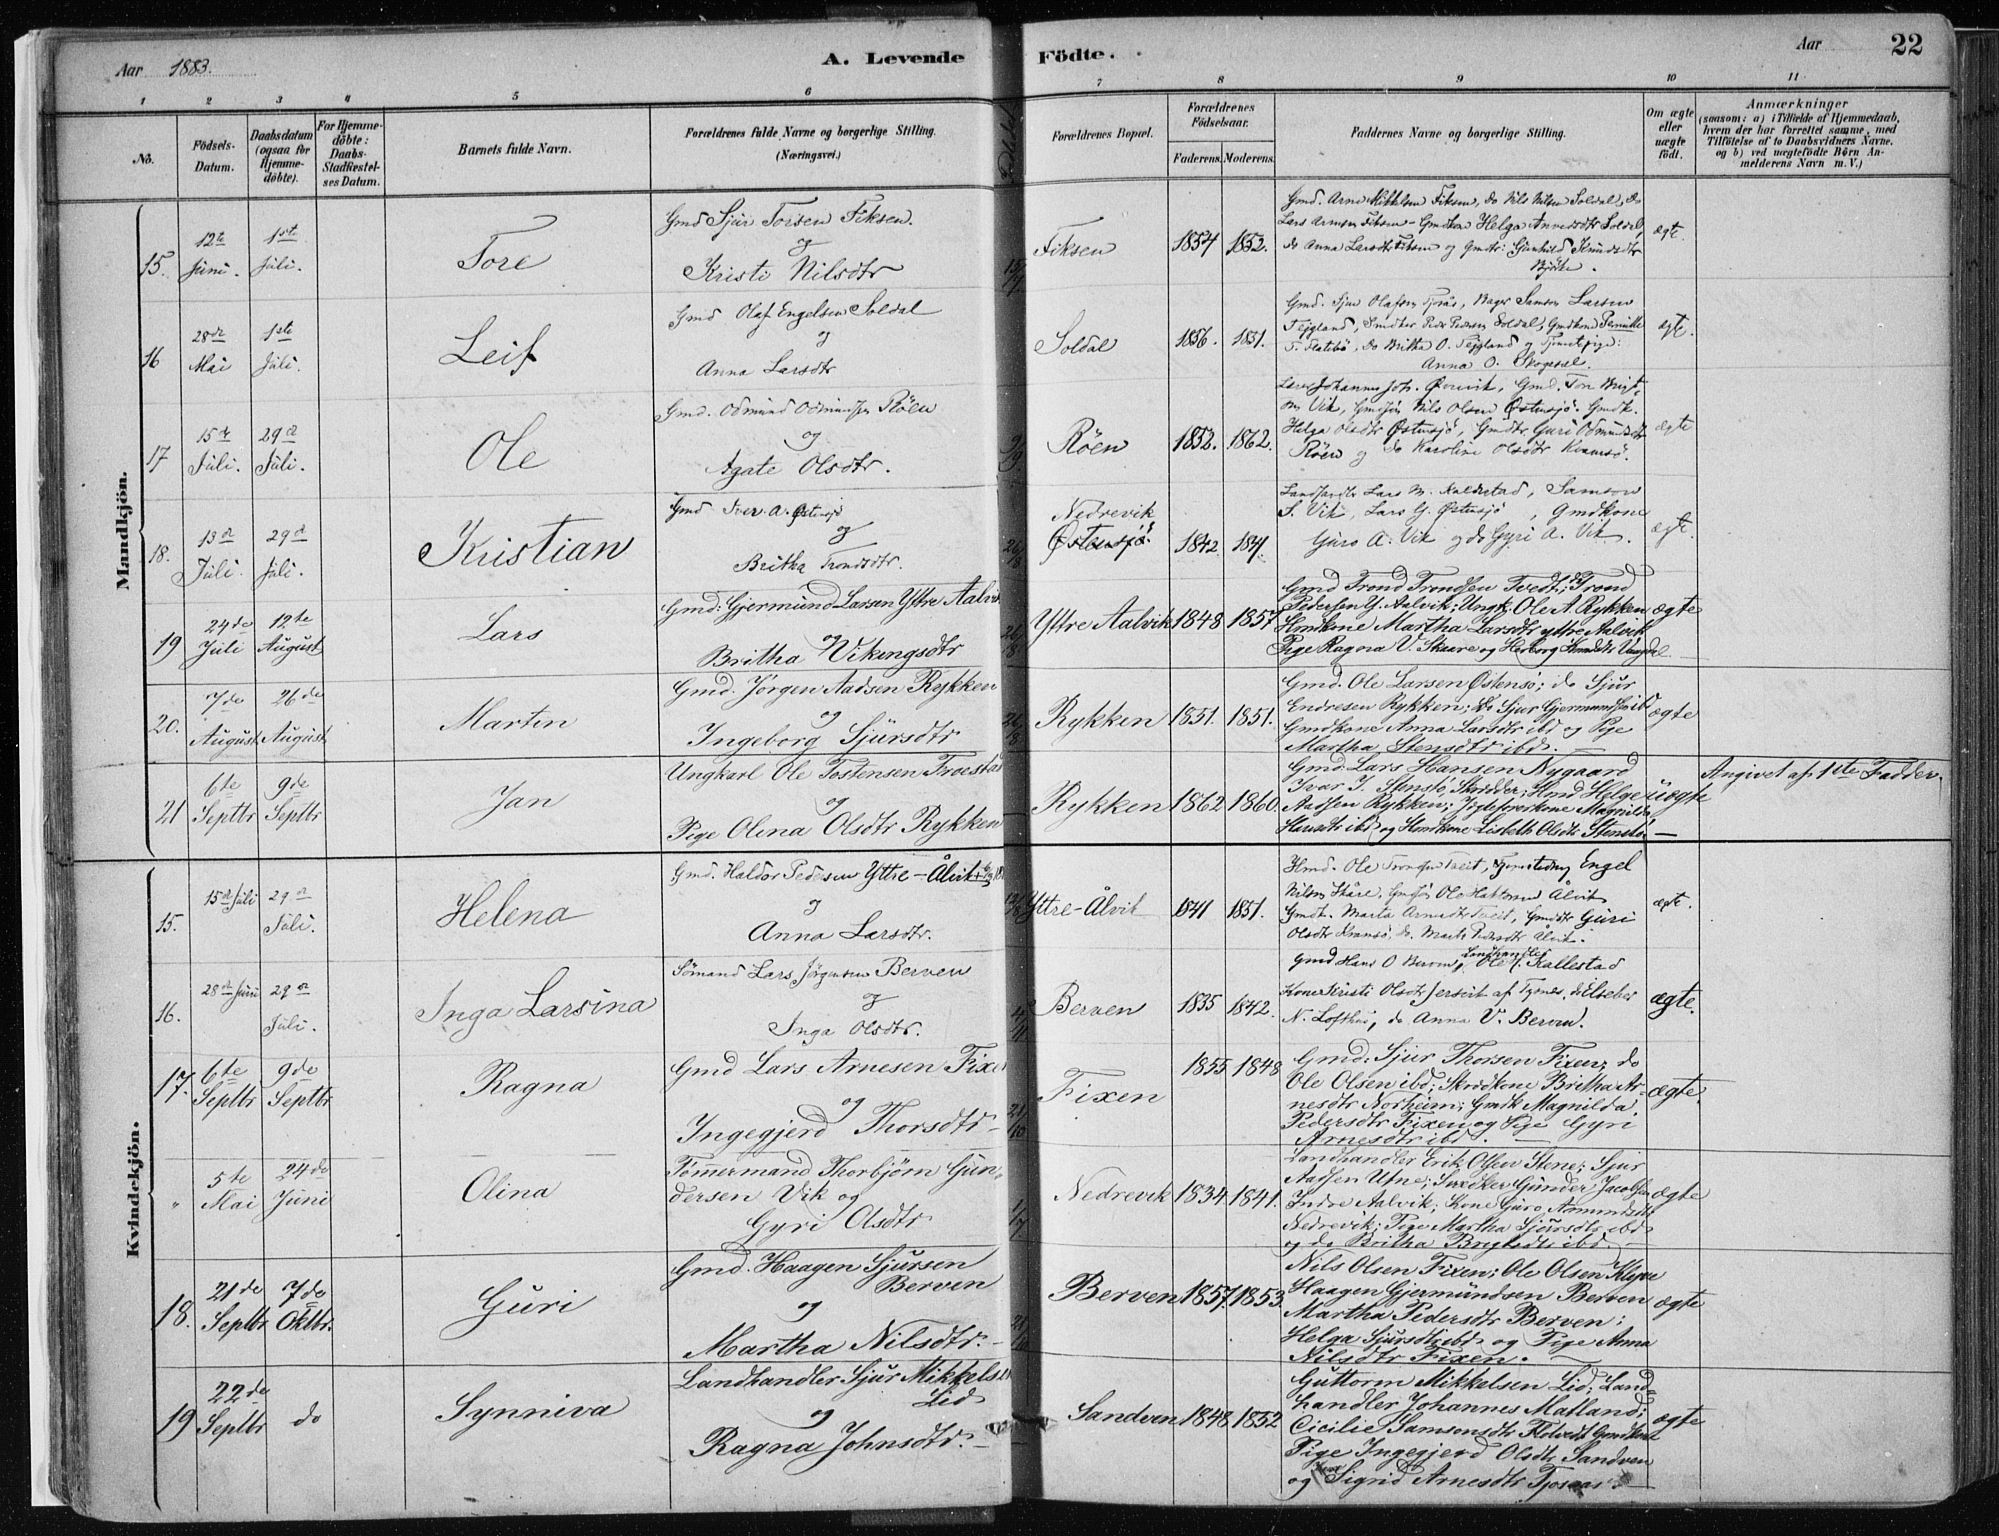 Aar 1883.
A. Levende
Födte.
Aar
22
1
2
3
4
5
6
7
8
9
10
11
No.
Födsels-Datum.
Daabsdatum (ogsaa for Hjemme-döbte).
For Hjemme-döbte: Daabs-Stadfæstel-ses Datum.
Barnets fulde Navn.
Forældrenes fulde Navne og borgerlige Stilling. (Næringsvei.)
Forældrenes Bopæl.
Forældrenes Födselsaar.
Faderens.
Moderens.
Faddernes Navne og borgerlige Stilling.
Om ægte eller uægte födt.
Anmærkninger
(saasom: a) i Tilfælde af Hjemmedaab, hvem der har forrettet samme, med Tilföielse af to Daabsvidners Navne, og b) ved uægtefödte Börn An-melderens Navn m. V.)
Mandkjön.
15.
12te Juni.
1ste Juli.
Tore
Gmd Sjur Torsen Fiksen.
og
Kristi Nilsdtr
Fiksen
1854
1852.
Gmd. Arne Mikkelsen Fiksen, do Nils Nilsen Soldal, do
Lars Arnesen Fiksen - Gmdkone Helga Soldal,
do Anna Larsdtr Fiksen og Gmdtr: Gunhild Knudsdtr
ægte.
16
28de Mai
1ste Juli.
Leif
Gmd Olaf Engelsen Soldal
og
Anna Larsdtr
Soldal
1856.
1851.
Gmd. Sjur Olafsen Tjosås, Bager Samson Larsen
Soldal, Gmdkone Pernille
T. Flatebö, do Britha O.
Anna O.
ægte.
17
15de Juli.
29de Juli.
Ole
Gmd. Odmund Odmundsen Röen
og
Agate Olsdtr.
Röen
1852.
1862.
Vik, Gmdsön Nils Olsen Östensjö. Gmdk.
Helga Olsdtr Östensjö, Gmdtr Guri Odmundsdtr
Röen og do Karoline Olsdtr
ægte
18.
13de Juli.
29de Juli.
Kristian
Gmd Iver A. Östensjö
og
Britha Trondsdtr.
Nedrevik
Östensjö
1842
Landhandler Lars M. Samson
S. Vik, Lars G. Östensjö, Gmdkone
Guro A. Vik og do Gyri A. Vik.
ægte.
19
24de Juli
12te August
Lars
Gmd: Gjermund Larsen Yttre Aalvik
og
Britha Vikingsdtr
Yttre Aalvik
1848
1857
Gmd Trond Trondsen Tvedt; do Trond
Pedersen Y. Aalvik; Ungk. Ole A. Rykken
Hmdkone Martha Larsdtr yttre Aalvik
Pige Ragna V. Skaare og Herborg
ægte
20.
7de August
26de August
Martin
Gmd. Jörgen Aadsen Rykken
og
Ingeborg Sjursdtr
26/8
Rykken
1851.
1851.
Gmd. Ole Larsen Östensö; do Sjur
Endresen Rykken; do Sjur Gjermundsen ibd
Gmdkone Anna Larsdtr ibd og Pige
Martha Stensdtr ibd.
ægte
21
6te Septbr
9de Septbr
Jan
Ungkarl Ole Tostensen Froestad
og
Pige Olina Olsdtr Rykken
Rykken
1862
1860.
Gmd: Lars Hansen Nygaard
Ivar J. Stensto, Skrædder; Hmd Helge
Aadsen Rykken; Magnilda
Hansdtr ibd og Hmdkone Lisbeth Olsdtr Stensto
uægte
Angivet af 1ste Fadder.
Kvindekjön.
15.
15de Juli
29de Juli.
Helena
Gmd. Haldor Pedersen Yttre-Ålvik
og
Anna Larsdtr.
Yttre-Ålvik
1841
1851.
Hmd. Ole Engel
Nilsen Skåre, Gmdsön Ole Ålvik
Gmdt. Marta Arnesdtr Tveit, Gmdtr Guri
Olsdtr do. Marta Ålvik.
ægt.
16.
28de Juni
29de Juli.
Inga Larsina
Sömand Lars Jörgensen Berven
og
Inga Olsdtr.
Berven
1835
1842.
Gmd Hans O Berven, Landhandler Ole J. Kallestad
Kone Kristi Olsdtr
N. Lofthus, do Anna V. Berven.
ægte.
17.
6te Septbr
9de Septbr
Ragna
Gmd Lars Arnesen Fixen
og
Ingegjerd Thorsdtr
21/10
Fixen
1855
1848
Gmd: Sjur Thorsen Fixen; do
Ole Olsen ibd; Skrædkone Britha Ar-
nesdtr Norheim; Gmdk Magnilda
Pedersdtr Fixen og Pige Gyri
Arnesdtr ibd.
ægte.
"
5te Mai
24de Juni
Olina
Tömmermand Thorbjörn Gun-
dersen Vik og
Gyri Olsdtr
1/7
Nedrevik
1834
1841.
Landhandler Erik Olsen Stene; Sjur
Aadsen Utne; Snedker Gunder Jacobsen
Indre Aalvik; Kone Guro Aamundsdtr
Nedrevik; Pige Martha Sjursdtr ibd
og do Britha Brigtsdtr ibd.
ægte
18.
21de Septbr
7de Oktbr.
Guri
Gmd. Haagen Sjursen
Berven
og
Martha Nilsdtr.
21/10
Berven
1857.
1853.
Nils Olsen Fixen; Ole Olsen Klyve
Haagen Gjermundsen Berven
Martha Pedersdtr Berven;
Helga Sjursdtr ibd og Pige Anna
Nilsdtr Fixen.
ægte
19
22de Septbr
do
Synniva
Landhandler Sjur Mikkelsen
Lid
og
Ragna Johnsdtr.
Sandven
1848
1852
Guttorm Mikkelsen Lid; Land-
handler Johannes Matland;
Cicilie Samsonsdtr Flotvedt Gmdkone
Pige Ingegjerd Olsdtr Sandven
og Sigrid Arnesdtr Tjosaas.
ægte